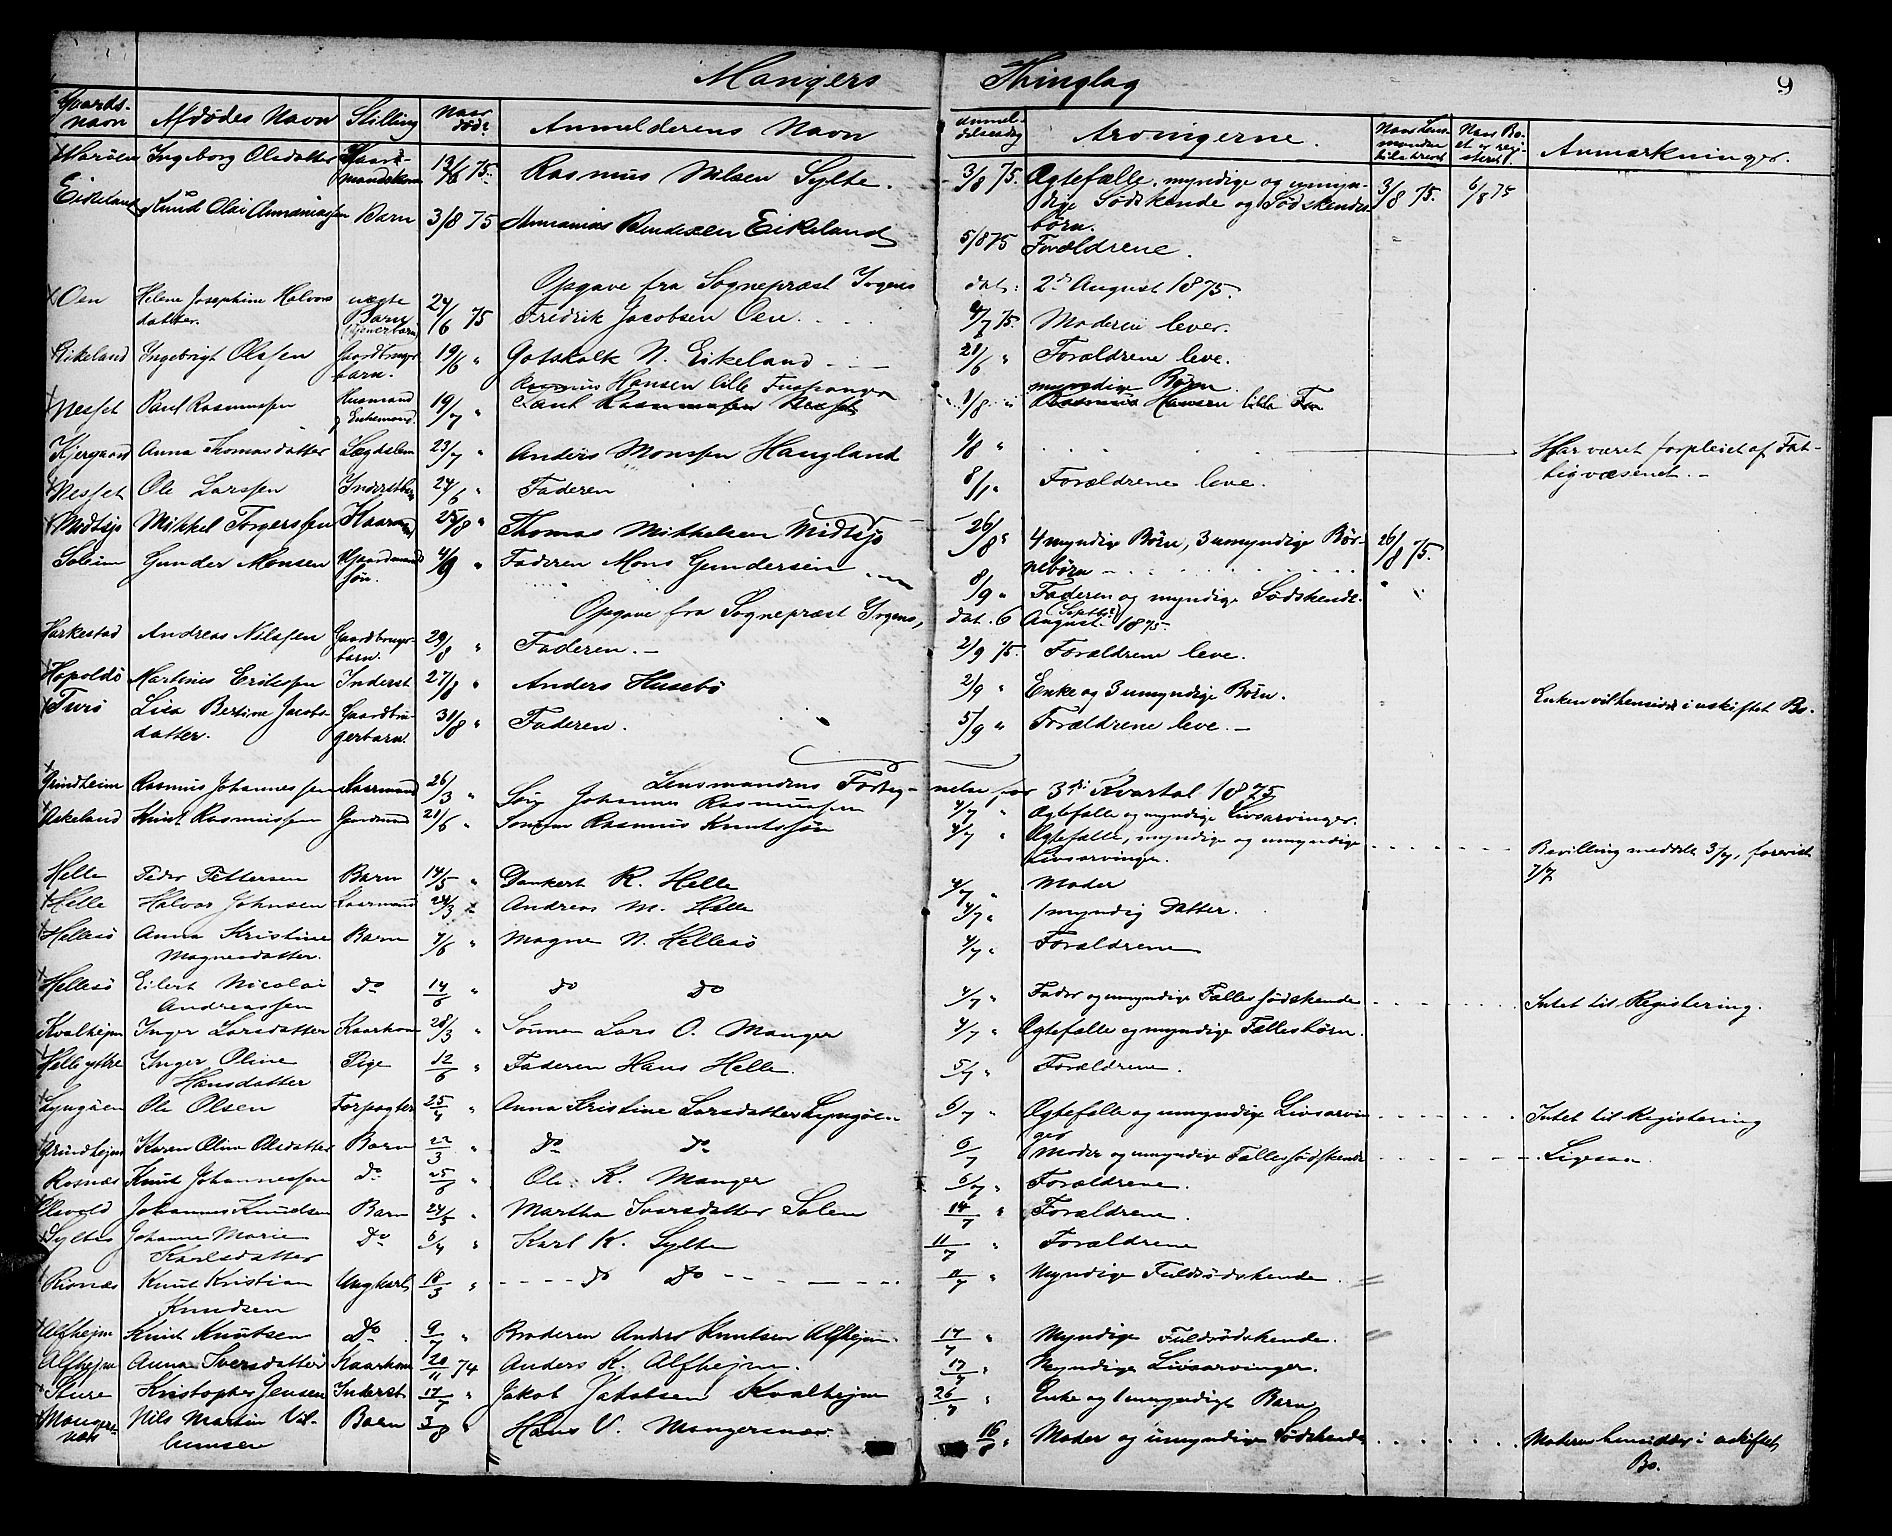 Mangers Thinglag 9
Gaards-navn Afdødes Navn Stilling Naar død? Anmelderens Navn Anmeldelsesdag Arvingerne. Anmærkninger.
Ingeborg Olsdatter 13/6 75 Rasmus Nilsen Sylte. 3/8 75. Ægtefælle, myndige og umyn-
dige Sødskende og Sødskende- 3/8 75. 6/8 75
børn.
Eikeland Knud Olai Ananiassen Barn 3/8 75 Annanias Bendixen Eikeland 5/8 75 Forældrene.
Opgave fra Sognepræst Irgens dat: 2d August 1875.
Oen Helene Josephine Halvors-
datter. uægte Barn 24/6 75 Fredrik Jacobsen Oen 4/7 75. Moderen lever.
Eikeland Ingebrigt Olssen Gaardbruger
barn. 19/6 " Gotskalk N. Eikeland 21/6 " Forældrene leve.
Rasmus Hansen lille Fuspangen myndige Børn.
Nesset Paul Rasmussen Husmand
og Enkemand. 19/7 " Paul Rasmussen Nesset 1/8 " Rasmus Hansen lille
Kjergaard Anna Thomasdatter Lægdslem 23/7 " Anders Monssen Haugland 1/8 " Har været forpleiet af Fat-
tigvæsenet.
Nesset Ole Larssen 24/6 " Faderen Forældrene leve.
Midtsjø Mikkel Torgerssen 25/8 " Thomas Mikkelsen Midtsjø 26/8 " 4 myndige Børn, 3 umyndige Bør-
nebørn 26/8 75.
Soleim Gunder Monsen 4/9 " Faderen Mons Gundersen 8/9 " Faderen og myndige Sødskende.
Opgave fra Sognepræst Irgens, dat. 6 (Septbr) August 1875.
Harkestad Andreas Nilssen Gaardbruger-
barn. 29/8 " Faderen. 2/9 75. Forældrene leve.
Hopoldø Martines Erikssen Inderst 27/8 " Anders Husebø 2/9 " Enke og 3 umyndige Børn. Enken vil hensidde i uskiftet Bo.
Turø Lisa Bertine Jacobs-
datter. Gaardbru-
gerbarn. 31/8 " Faderen. 5/9 " Forældrene leve.
Lensmandens Forteg- nelse for 3die Kvartal 1875
Grindheim Rasmus Johannessen Kaarmand 26/3 " Søn Johannes Rasmussen 4/7 " Ægtefælle og myndige Livsarvinger.
Askeland Knut Rasmussen Gaardmand 21/6 " Sønnen Rasmus Knutssøn 4/7 " Ægtefælle, myndige og umyndige
Livsarvinger. Bevilling meddelt 3/7, forevist
7/7
Helle Peder Pettersen Barn 14/5 " Dankert R. Helle 4/7 " Moder
Helle Halvor Johnsen Kaarmand 24/3 " Andreas M. Helle 4/7 " 1 myndig Datter.
Hellesø Anna Kristine
Magnesdatter. Barn 7/6 " Magne N. Hellesø 4/7 " Forældrene
Hellesø Eilert Nicolai
Andreassen do 14/6 " do do 4/7 " Fader og umyndige Fællessødskende Intet til Registering.
Kvalhejm Inger Larsdatter Kaarkone 28/3 " Sønnen Lars O. Manger 4/7 " Ægtefælle og myndige Fællesbørn.
Helle ystre Inger Oline
Hansdatter Pige 12/6 " Faderen Hans Helle. 5/7 " Forældrene.
Lyngøen Ole Olsen Forpagter 25/4 " Anna Kristine Larsdatter Lyngøen 6/7 " Ægtefælle og umyndige Livsarvin-
ger Intet til Registering
Grindhejm Karen Olina Olsdatter Barn 22/3 " do do 6/7 Moder og umyndige Fællessødskende Ligesaa.
Rosnæs Knut Johannessen do 25/6 " Ole K. Manger 6/7 " Forældrene.
Johannes Knudsen Barn 24/5 " Martha Iversdatter Solem 14/7 " Forældrene.
Syltes Johanne Marie
Karlsdatter Do 6/4 " Karl K. Sylte 11/7 " Forældrene
Risnæs Knut Kristian
Knudsen Ungkarl 18/3 " do do 11/7 " Myndige Fuldsødskende.
Alfhejm Knut Knutsen Do 9/7 " Broderen Anders Knutsen Alfhejm 17/7 " Myndige Fuldsødskende.
Alfhejm Anna Iversdatter Kaarkone 20/11 74 Anders K. Alfhejm. 17/7 " Myndige Livsarvinger.
Sture Kristopher Jensen Inderst 17/7 " Jakob Jakobsen Kvalhejm 26/7 " Enke og 1 umyndigt Barn
Mangers-
næs Nils Martin Vil-
humsen Barn 3/8 " Hans V. Mangersnæs 16/8 " Moder og umyndige Sødskende Moderen hensidder i uskiftet
Bo.